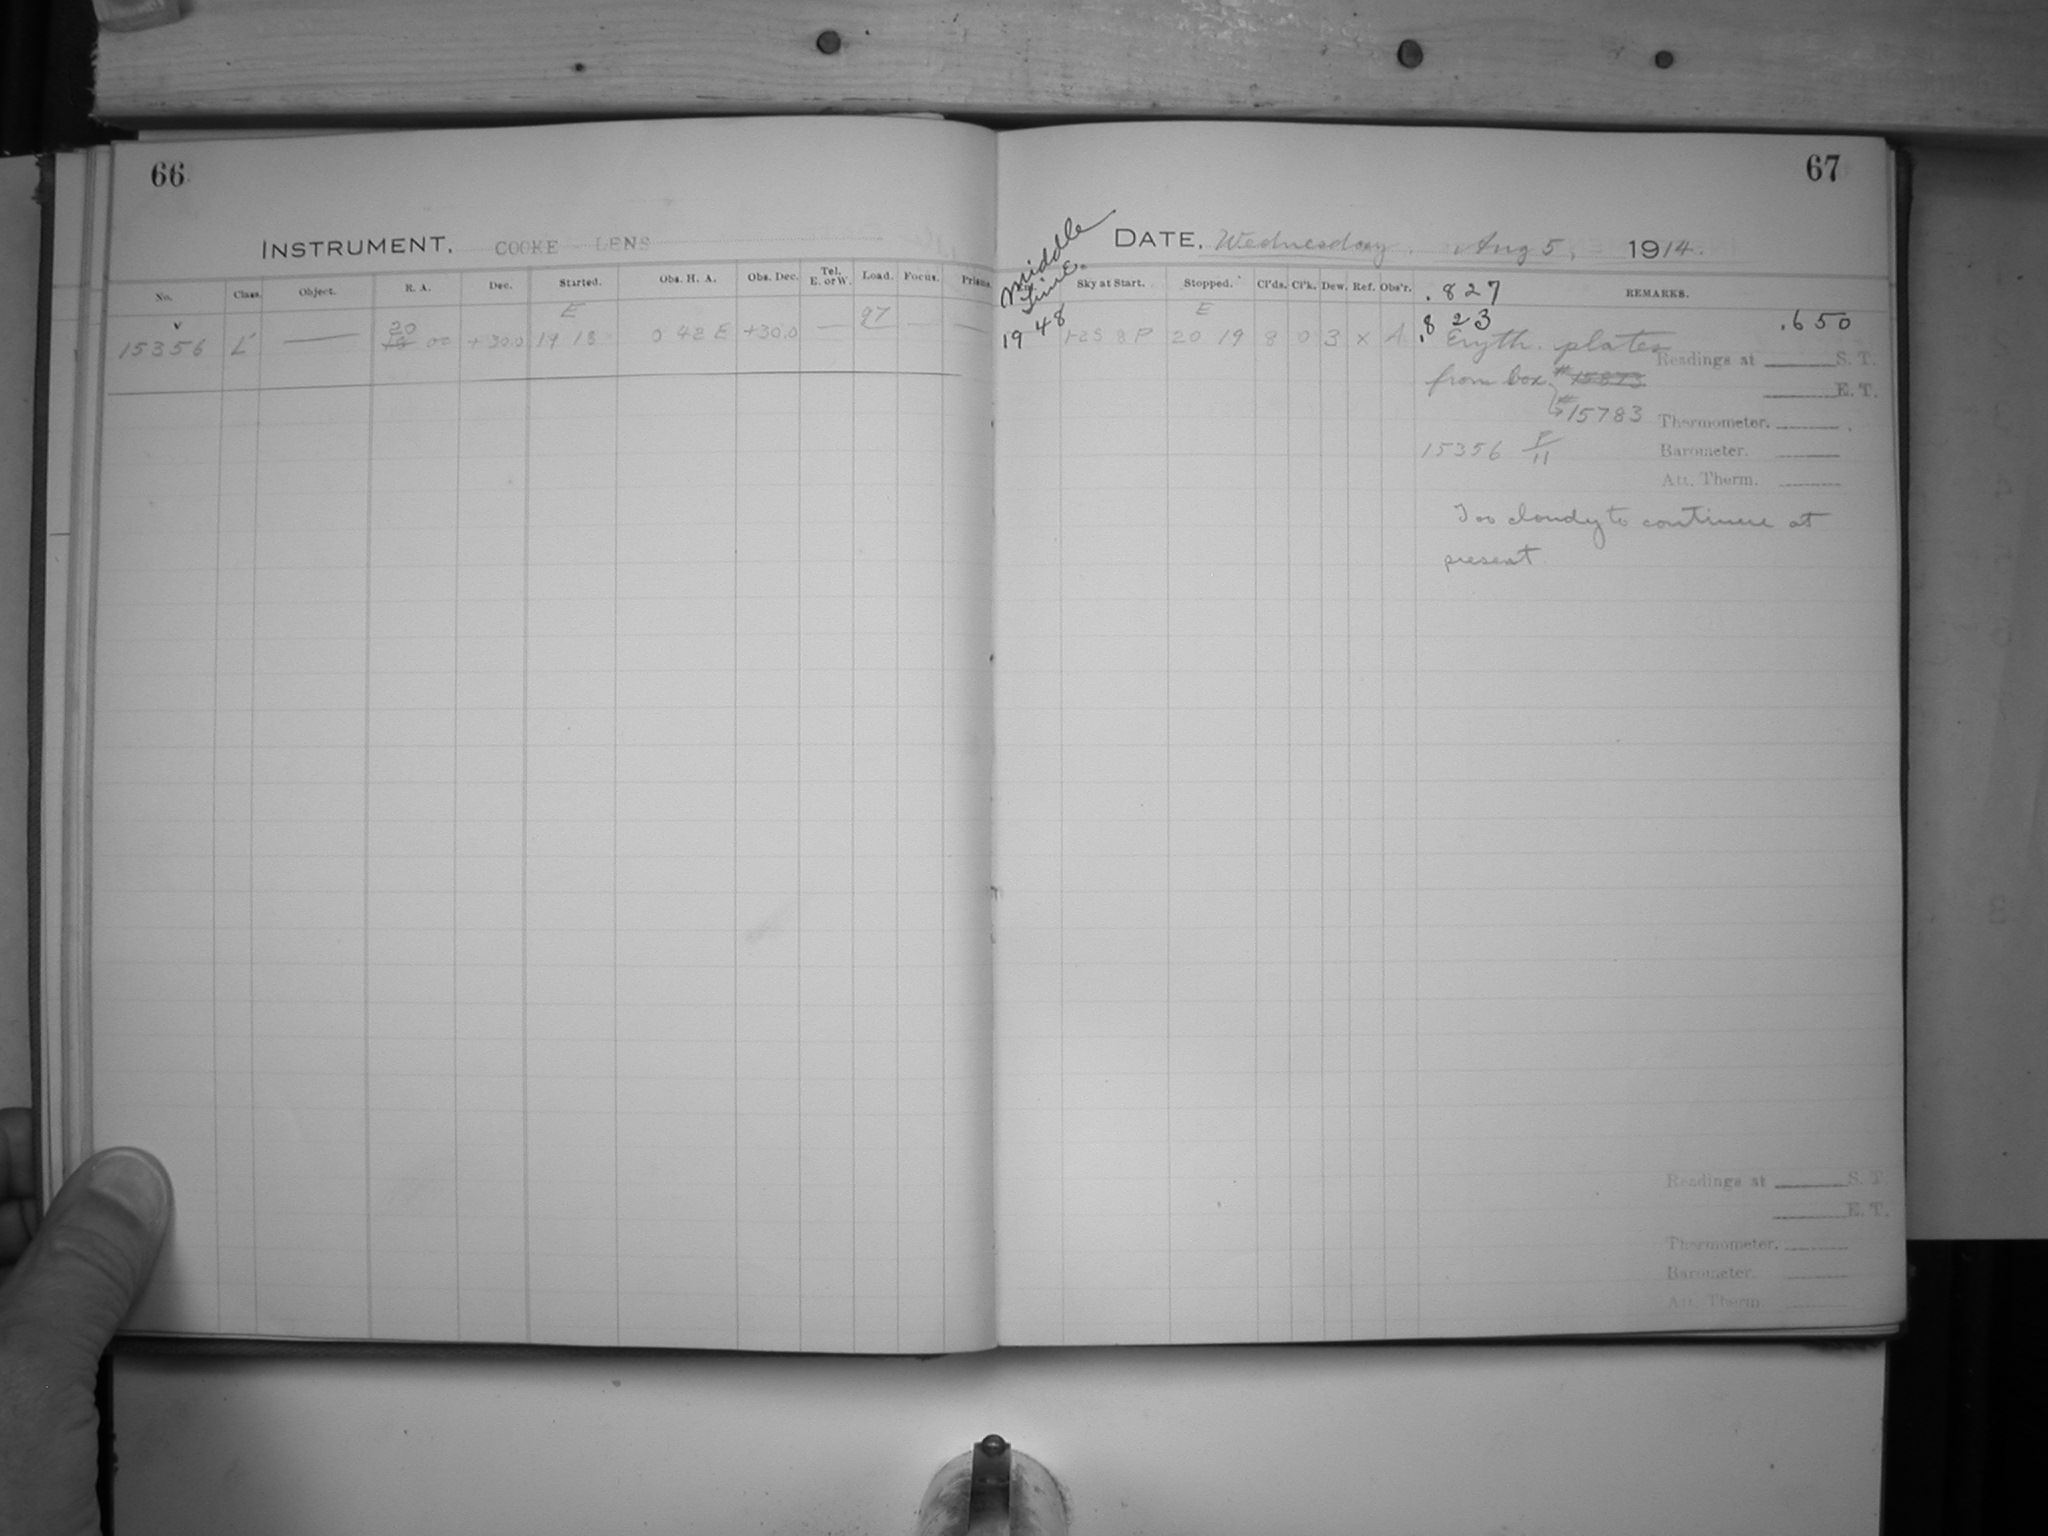 66
INSTRUMENT. COOKE LENS
No. Class. Object. R. A. Dec. Started. Obs. H. A. Obs. Dec. Tel. E. or W. Load. Focus. Prisms.
E 97
20
15356 L 19 00 +30.0 19 18 0 42 E +30.0
67
Middle
Time.
DATE. Wednesday. Aug 5, 1914.
Sky at Start. Stopped. Cl'ds. Cl'k. Dew. Ref. Obs'r. .827 REMARKS.
E .823 .650
19 48 8 P 20 19 8 0 3 x A Eryth. plates
Readings at S. T.
from box # 15873
E. T.
# 15783
Thermometer.
15356 F/11
Barometer.
Att. Therm.
Too cloudy to continue at
present
Readings at S. T.
E. T.
Thermometer.
Barometer.
Att. Therm.